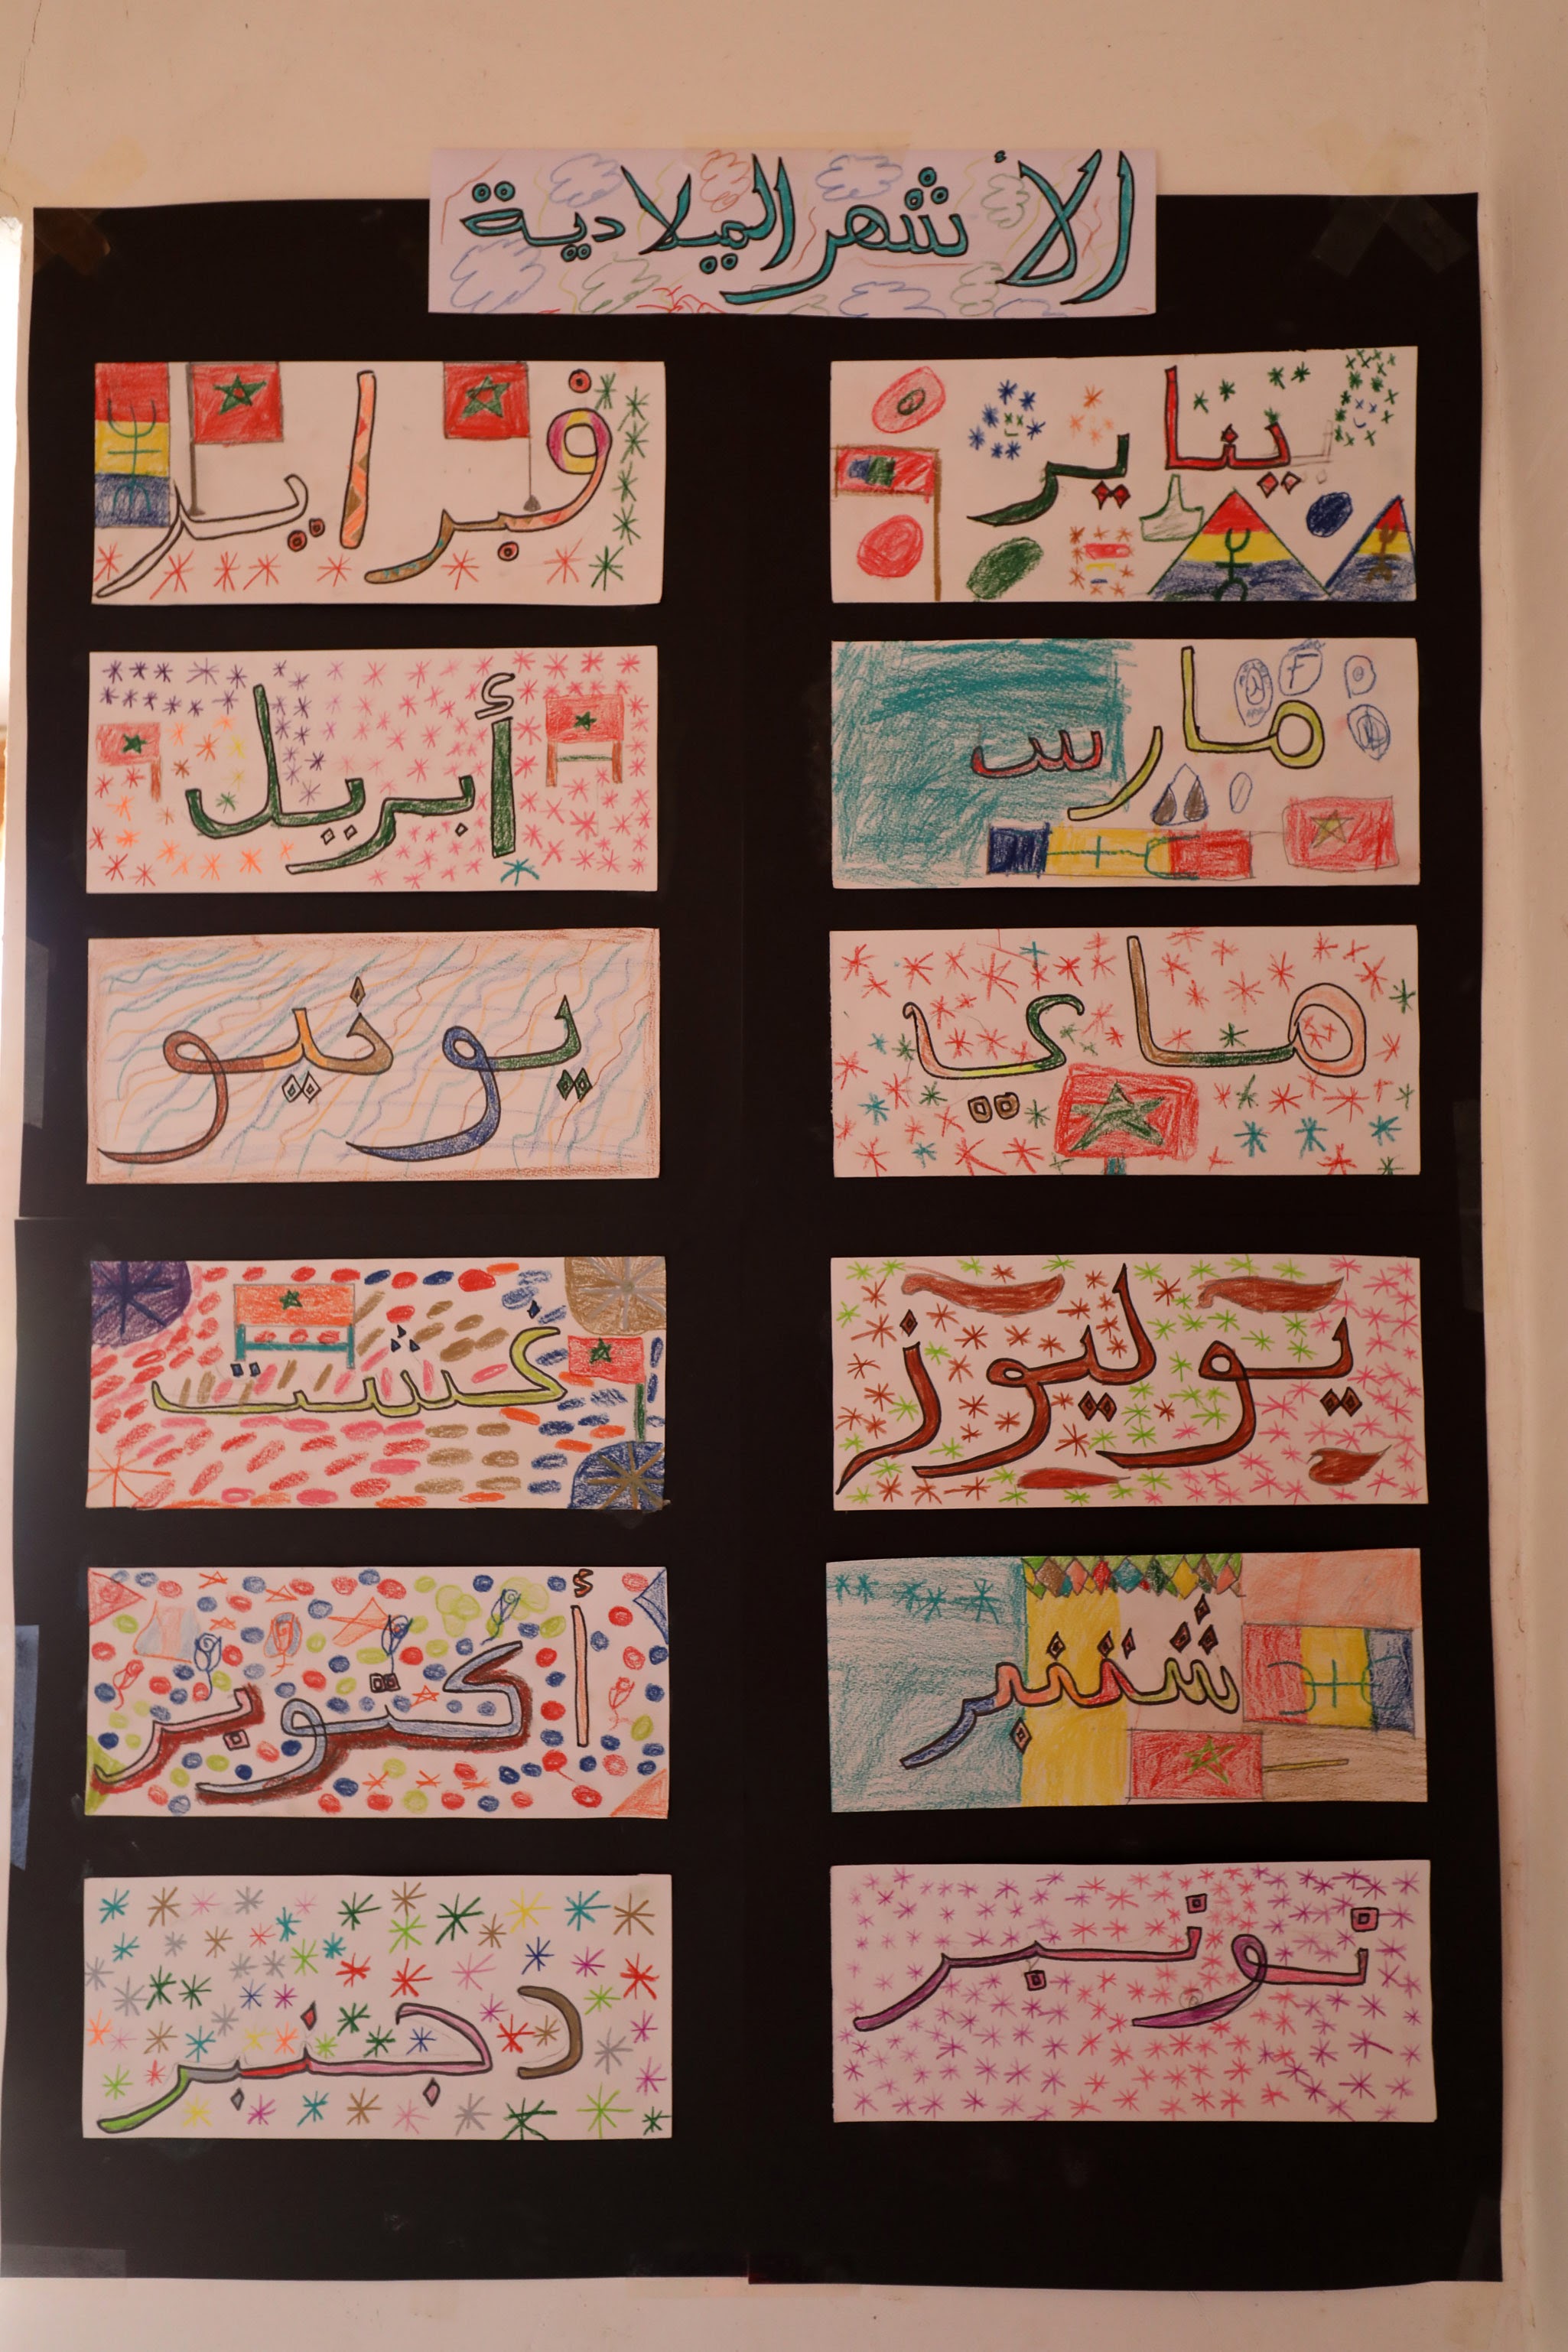 الأشهر الميلادية
يناير
فبراير
مارس
أبريل
ماي
يونيو
يوليوز
غشت
شتنبر
أكتوبر
نونبر
دجنبر